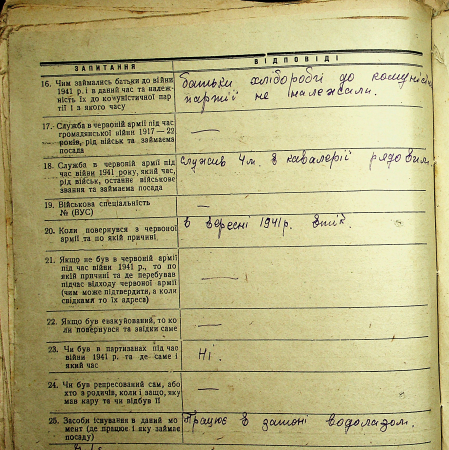 ЗАПИТАННЯ
ВІДПОВІДІ
16. Чим займались батьки до війни
1941 р. і в даний час та належ-
ність їх до комуністичної пар-
тії і з якого часу
батьки хлібороби до комуніс
партії не належали.
17. Служба в червоній армії під час
громадянської війни 1917 — 22
років, рід військ та займаєма
посада
—
18. Служба в червоній армії під
час війни 1941 року, який час,
рід військ, останнє військове
звання та займаєма посада
служив 4 м. в кавалерії рядовим
19. Військова спеціальність
№ (ВУС)
—
20. Коли повернувся з червоної
армії та по якій причині
в вересні 1941 р. втік
21. Якщо не був в червоній армії
під час війни 1941 р., то по
якій причині та де перебував
підчас відходу червоної армії
(чим може підтвердити, а коли
свідками то їх адреса)
—
22. Якщо був евакуйований, то ко-
ли повернувся та звідки саме
—
23. Чи був в партизанах під час
війни 1941 р. та де саме і
який час
Ні.
24. Чи був репресований сам, або
хто з родичів, коли і защо, яку
мав кару та чи відбув її
—
25. Засоби існування в даний мо-
мент (де працює і яку займає
посаду)
Працює в затоні водолазом.